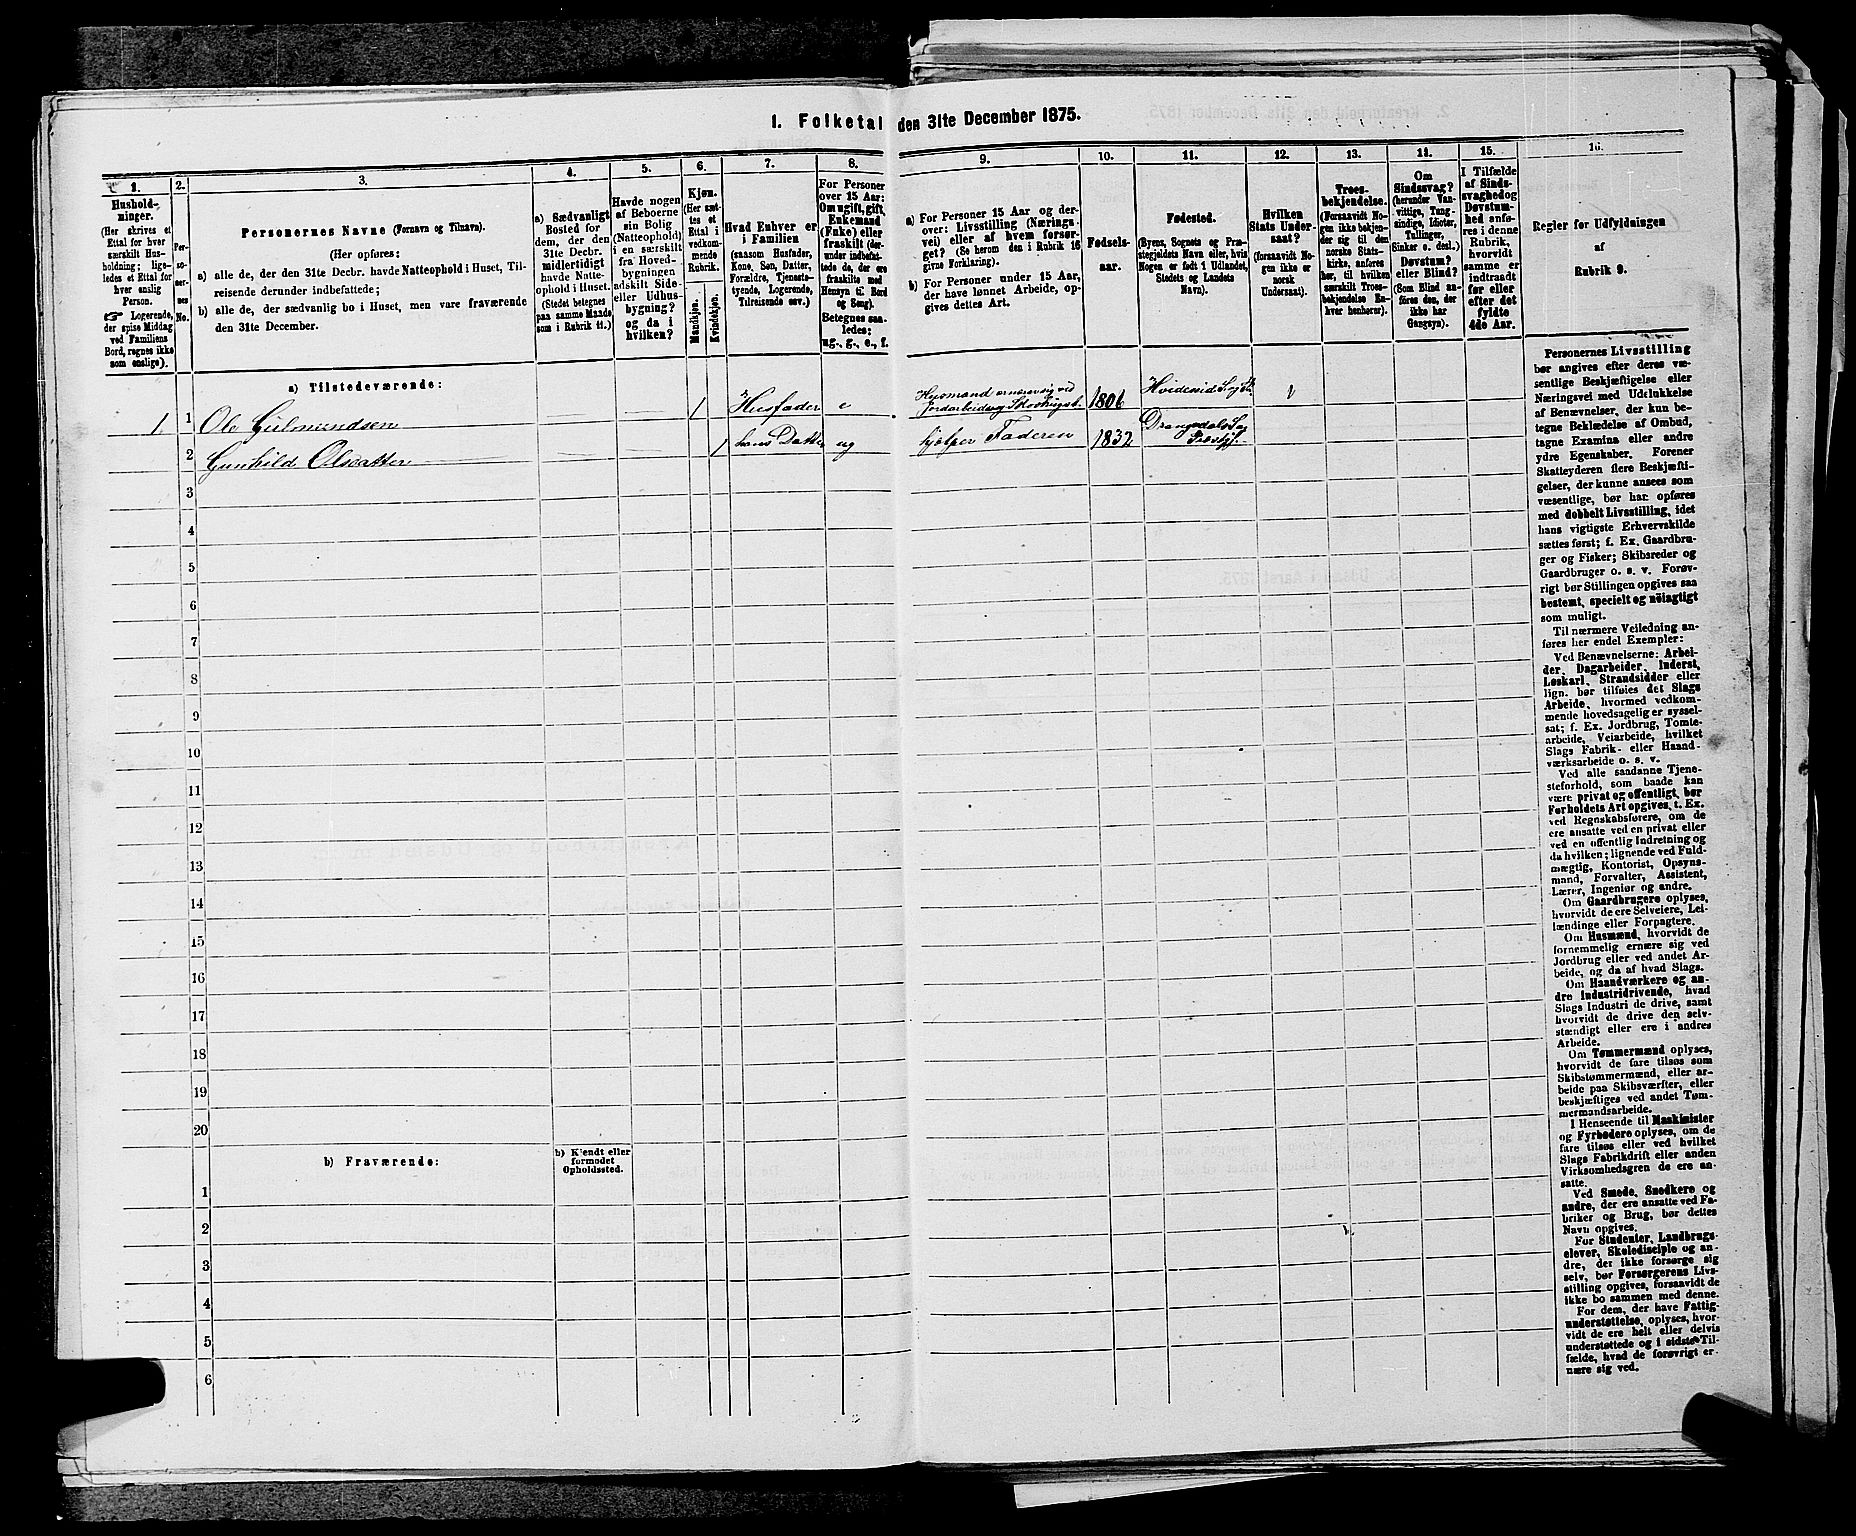 1. Folketal den 31te December 1875.
1.
Hushold-
ninger.
(Her skrives et
Ettal for hver
særskilt Hus-
holdning; lige-
ledes et Ettal for
hver enslig
Person.
☞ Logerende,
der spise Middag
ved Familiens
Bord, regnes ikke
som enslige).
2.
Per-
so-
ner-
nes
No.
3.
Personernes Navne (Fornavn og Tilnavn).
(Her opføres:
a) alle de, der den 31te Decbr. havde Natteophold i Huset, Til-
reisende derunder indbefattede;
b) alle de, der sædvanlig bo i Huset, men vare fraværende
den 31te December.
4.
a) Sædvanligt
Bosted for
dem, der den
31te Decbr.
midlertidigt
havde Natte-
ophold i Huset.
(Stedet betegnes
paa samme Maade
som i Rubrik 11.)
5.
Havde nogen
af Beboerne
sin Bolig
(Natteophold)
i en særskilt
fra Hoved-
bygningen
adskilt Side-
eller Udhus-
bygning?
og da i
hvilken?
6.
Kjøn.
(Her sæt-
tes et
Ettal i
vedkom-
mende
Rubrik.
Mandkjøn.
Kvindekjøn.
7.
Hvad Enhver er
i Familien
(saasom Husfader,
Kone, Søn, Datter,
Forældre, Tjeneste-
tyende, Logerende,
Tilreisende osv.)
8.
For Personer
over 15 Aar:
Om ugift, gift,
Enkemand
(Enke) eller
fraskilt (der-
under indbefat-
tede de, der ere
fraskilte med
Hensyn til Bord
og Seng).
Betegnes saa-
ledes:
ug., g., e., f.
9.
a) For Personer 15 Aar og der-
over: Livsstilling (Nærings-
vei) eller af hvem forsør-
get? (Se herom den i Rubrik 16
givne Forklaring).
b) For Personer under 15 Aar,
der have lønnet Arbeide, op-
gives dettes Art.
10.
Fødsels-
aar.
11.
Fødested.
(Byens, Sognets og Præ-
stegjeldets Navn eller, hvis
Nogen er født i Udlandet,
Stedets og Landets
Navn).
12.
Hvilken
Stats Under-
saat?
(forsaavidt No-
gen ikke er
norsk
Undersaat).
13.
Troes-
bekjendelse.
(Forsaavidt No-
gen ikke bekjen-
der sig til den
norske Stats-
kirke, anføres
her, til hvilken
særskilt Troes-
bekjendelse En-
hver henhører).
14.
Om
Sindssvag?
(herunder Van-
vittige, Tung-
sindige, Idioter,
Tullinger,
Sinker o. desl.)
Døvstum?
eller Blind?
(Som Blind an-
føres den, der
ikke har
Gangsyn).
15.
I Tilfælde
af Sinds-
svaghed og
Døvstum-
hed anfø-
res i denne
Rubrik,
hvorvidt
samme er
indtraadt
før eller
efter det
fyldte
4de Aar.
16.
Regler for Udfyldningen
af
Rubrik 9.
a) Tilstedeværende:
1 1 Ole Gulmundsen 1 Husfader e Husmand ernærer sig ved Jordarbeide 1806 Hvideseid
2 Gunhild Olsdatter 1 hans Datter ug hjelper Faderen 1832 Drangedals
3
4
5
6
7
8
9
10
11
12
13
14
15
16
17
18
19
20
b) Fraværende:
b) Kjendt eller
formodet
Opholdssted.
1
2
3
4
5
6
Personernes Livsstilling
bør angives efter deres væ-
sentlige Beskjæftigelse eller
Næringsvei med Udelukkelse
af Benævnelser, der kun be-
tegne Beklædelse af Ombud,
tagne Examina eller andre
ydre Egenskaber. Forener
Skatteyderen flere Beskjæfti-
gelser, der kunne ansees som
væsentlige, bør han opføres
med dobbelt Livsstilling, idet
hans vigtigste Erhvervskilde
sættes først; f. Ex. Gaardbru-
ger og Fisker; Skibsreder og
Gaardbruger o. s. v. Forøv-
rigt bør Stillingen opgives saa
bestemt, specielt og nöiagtigt
som muligt.
Til nærmere Veiledning an-
føres her endel Exempler:
Ved Benævnelserne: Arbei-
der, Dagarbeider, Inderst,
Løskarl, Strandsidder eller
lign. bør tilføies det Slags
Arbeide, hvormed vedkom-
mende hovedsagelig er syssel-
sat; f. Ex. Jordbrug, Tomte-
arbeide, Veiarbeide, hvilket
Slags Fabrik- eller Haand-
værksarbeide o. s. v.
Ved alle saadanne Tjene-
steforhold, som baade kan
være privat og offentligt, bør
Forholdets Art opgives, t. Ex.
ved Regnskabsførere, om de
ere ansatte ved en privat eller
ved en offentlig Indretning og
da hvilken; lignende ved Fuld-
mægtig, Kontorist, Opsyns-
mand, Forvalter, Assistent,
Lærer, Ingeniør og andre.
Om Gaardbrugere oplyses,
hvorvidt de ere Selveiere, Lei-
lændinge eller Forpagtere.
Om Husmænd, hvorvidt de
fornemmelig ernære sig ved
Jordbrug eller ved andet Ar-
beide, og da af hvad Slags.
Om Haandværkere og an-
dre Industridrivende, hvad
Slags Industri de drive, samt
hvorvidt de drive den selv-
stændigt eller ere i andres
Arbeide.
Om Tømmermænd oplyses,
hvorvidt de fare tilsøs som
Skibstømmermænd, eller ar-
beide paa Skibsværfter, eller
beskjæftiges ved andet Tøm-
mermandsarbeide.
I Henseende til Maskinister
og Fyrbødere oplyses, om de
fare tilsøs eller ved hvilket
Slags Fabrikdrift eller anden
Virksomhedsgren de ere an-
satte.
Ved Smede, Snedkere og
andre, der ere ansatte ved Fa-
briker og Brug, bør dettes
Navn opgives.
For Studenter, Landbrugs-
elever, Skoledisciple og an-
dre, der ikke forsørge sig
selv, bør Forsørgerens Livs-
stilling opgives, forsaavidt de
ikke bo sammen med denne.
For dem, der have Fattig-
understøttelse, oplyses, hvor-
vidt de ere helt eller delvis
understøttede og i sidste Til-
fælde, hvad de forøvrigt er-
nære sig ved.